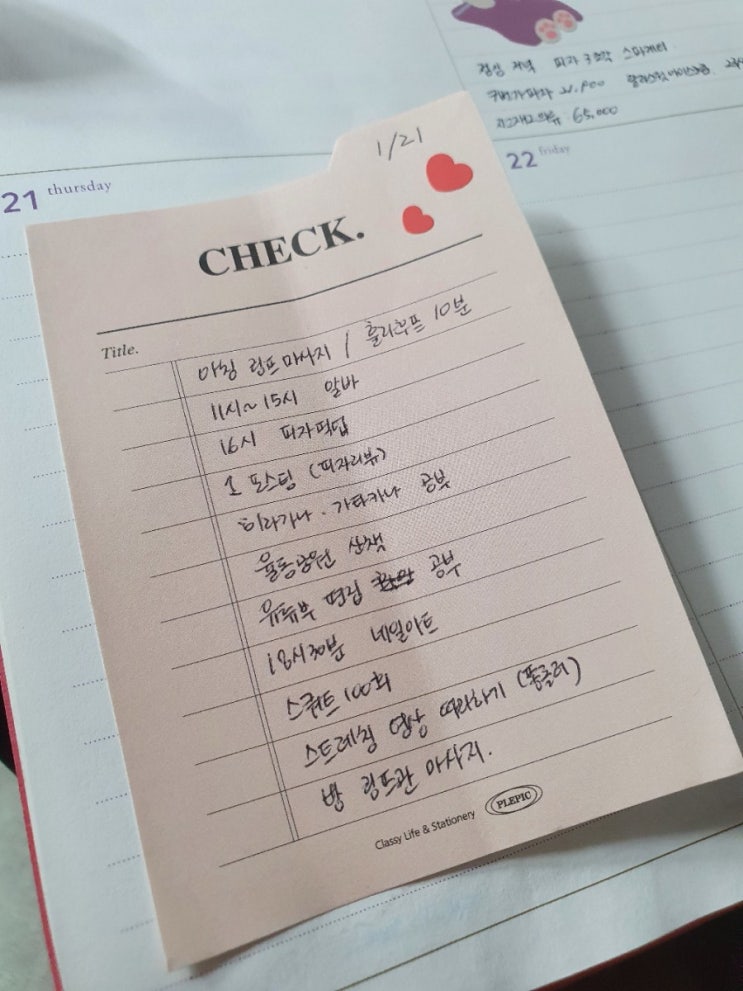 점심 저녁 피자 구매각 스파게티
65,000
1/21
21 thursday
22 friday
CHECK.
Title.
아침 림프마사지 / 훌라후프 10분
11시~15시 알바
16시 피자픽업
1 포스팅 (피자리뷰)
히라가나 · 가타카나 공부
율동공원 산책
유튜브 편집 공부
18시30분 네일아트
스쿼트 100회
스트레칭 영상 따라하기 (폼롤러)
밤 림프관 마사지.
Classy Life & Stationery PLEPIC